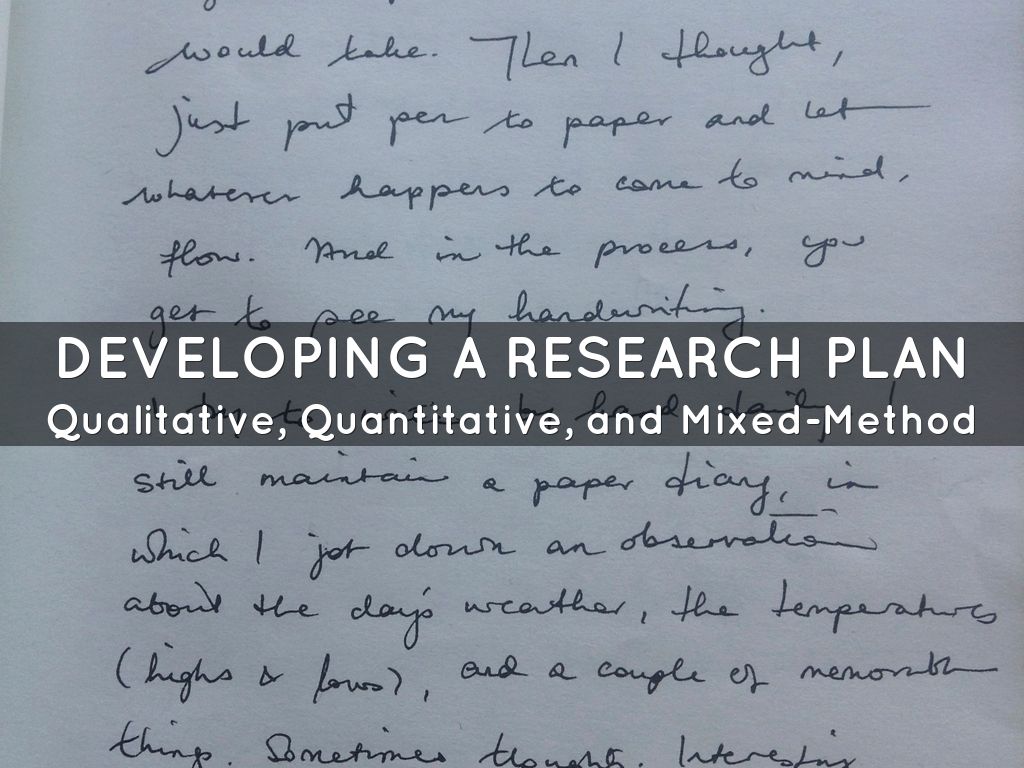 would take. Then I thought,
just put pen to paper and let
whatever happens to come to mind,
flow. And in the process, you
get to see my handwriting.
DEVELOPING A RESEARCH PLAN
Qualitative, Quantitative, and Mixed-Method
I try to write by hand daily. I
still maintain a paper diary, in
which I jot down an observation
about the day's weather, the temperatures
(highs & lows), and a couple of memorable
things. Sometimes thoughts. Interesting